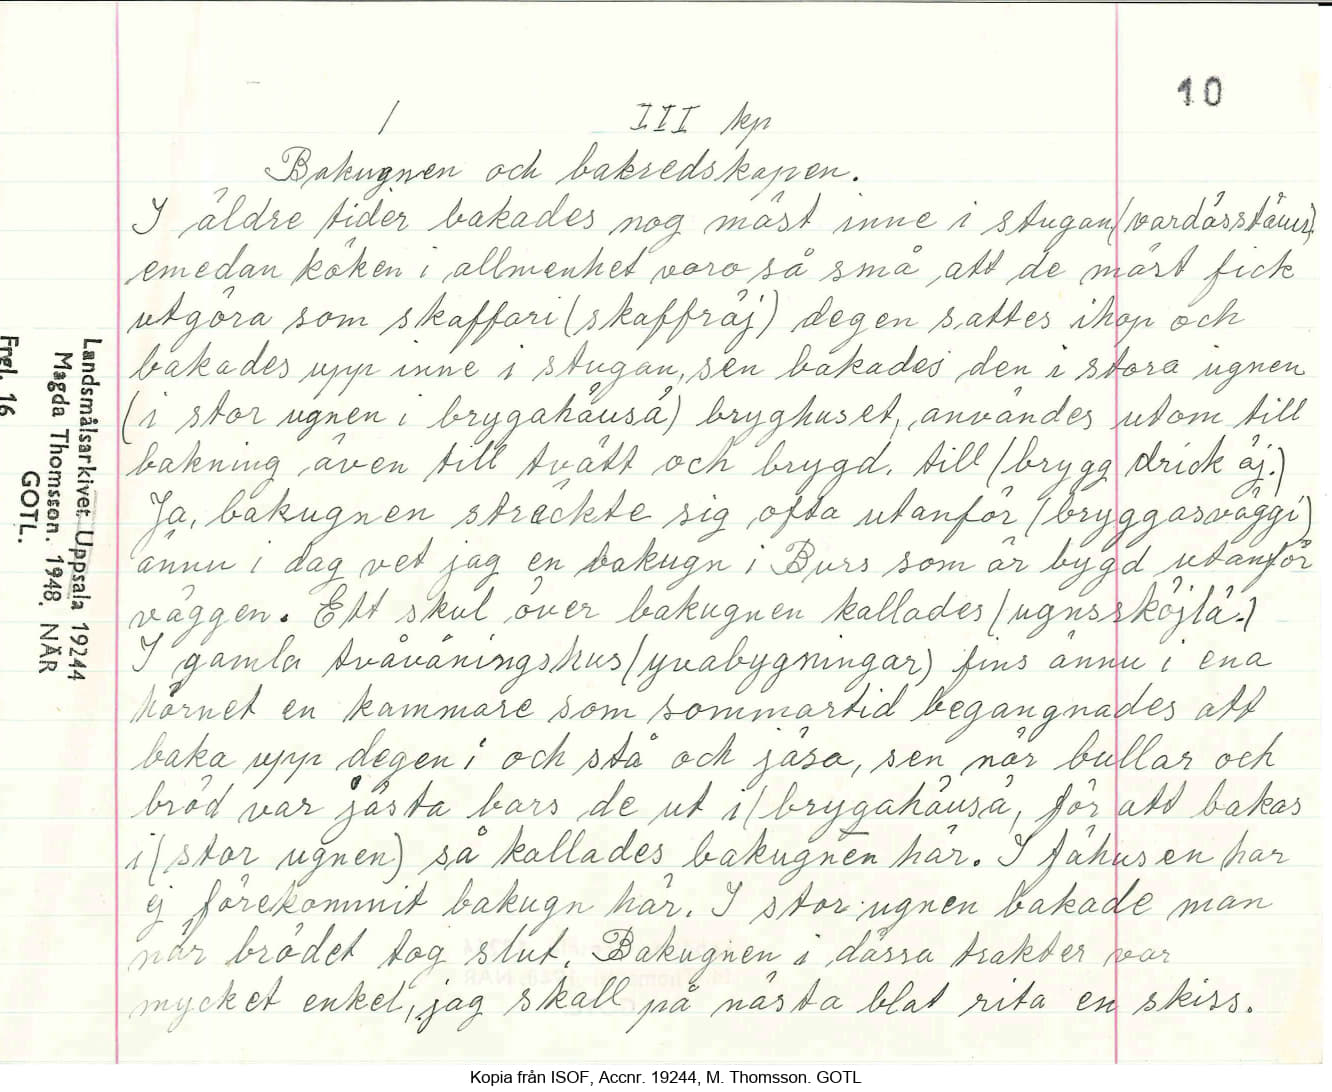 10
1 III kp
Bakugnen och bakredskapen.
I äldre tider bakades nog mäst inne i stugan, (vardåsståuu)
emedan köken i allmenhet voro så små att de mäst fick
utgöra som skafferi (skaffräj) degen sattes ihop och
bakades upp inne i stugan, sen bakades den i stora ugnen
(i stor ugnen i brygahåuså) bryghuset, användes utom till
bakning även till tvätt och brygd. till (brygg drick äj.)
Ja, bakugnen sträckte sig ofta utanför (bryggasväggi)
ännu i dag vet jag en bakugn i Burs som är bygd utanför
väggen. Ett skul över bakugnen kallades (ugnssköjlä.)
I gamla tvåvåningshus (yvabygningar) fins ännu i ena
hörnet en kammare som sommartid begangnades att
baka upp degen i och stå och jäsa, sen när bullar och
bröd var jästa bars de ut i (brygahåuså, för att bakas
i (stor ugnen) så kallades bakugnen här. I fähusen har
ej förekommit bakugn här. I stor ugnen bakade man
när brödet tog slut. Bakugnen i dässa trakter var
mycket enkel, jag skall på nästa blat rita en skiss.
Landsmålsarkivet Uppsala 19244
Magda Thomsson. 1948. NÄR
GOTL.
Frgl. 16
Kopia från ISOF, Accnr. 19244, M. Thomsson. GOTL